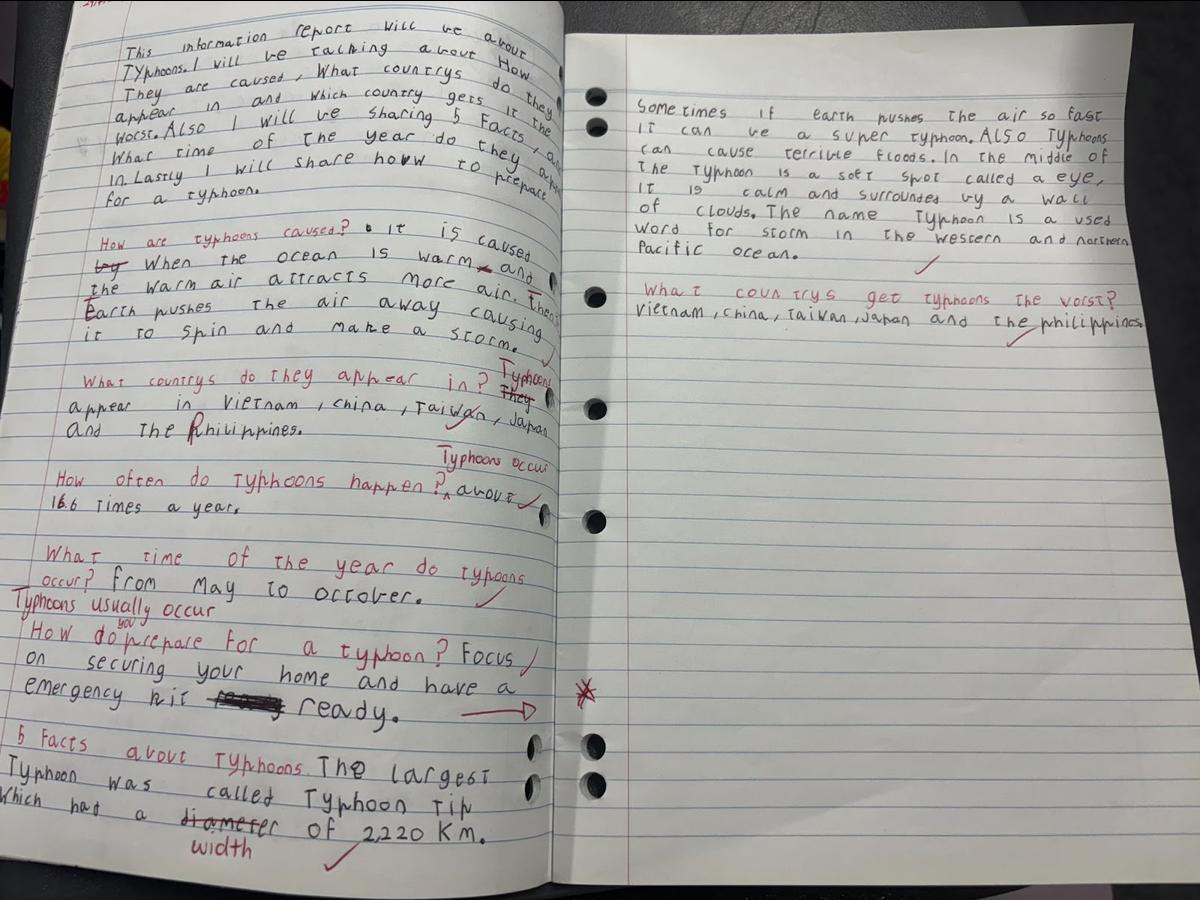 This information report will be about
Typhoons. I will be talking about How
They are caused, What countrys do they
appear in and which country gets it the
worst. Also I will be sharing 5 Facts,
What time of the year do they
in. Lastly I will share how to prepare
for a typhoon.
How are typhoons caused? It is caused
by When the ocean is warm and
the warm air attracts more air. Then
Earth pushes the air away causing
it to spin and make a storm.
What countrys do they appear in? They Typhoons
appear in Vietnam, China, Taiwan, Japan
and the Philippines.
Typhoons occur
How often do Typhoons happen? ^ about
16.6 times a year.
What time of the year do typoons
occur? From May to october.
Typhoons usually occur
How do you prepare for a typhoon? Focus
on securing your home and have a
emergency kit ready.
5 Facts about Typhoons. The largest
Typhoon was called Typhoon Tip
Which had a diameter of 2,220 Km.
width
Sometimes if earth pushes the air so fast
it can be a super typhoon. Also Typhoons
can cause terrible floods. In the middle of
the typhoon is a soft spot called a eye,
it is calm and surrounded by a wall
of clouds. The name Typhoon is a used
word for storm in the western and northern
Pacific ocean.
What countrys get typhoons the worst?
Vietnam, China, Taiwan, Japan and the philippines.